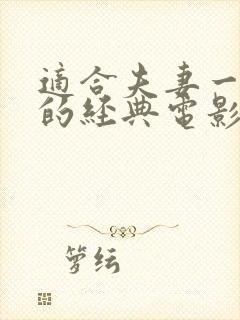 適合夫妻一
的經典電影
箩纭